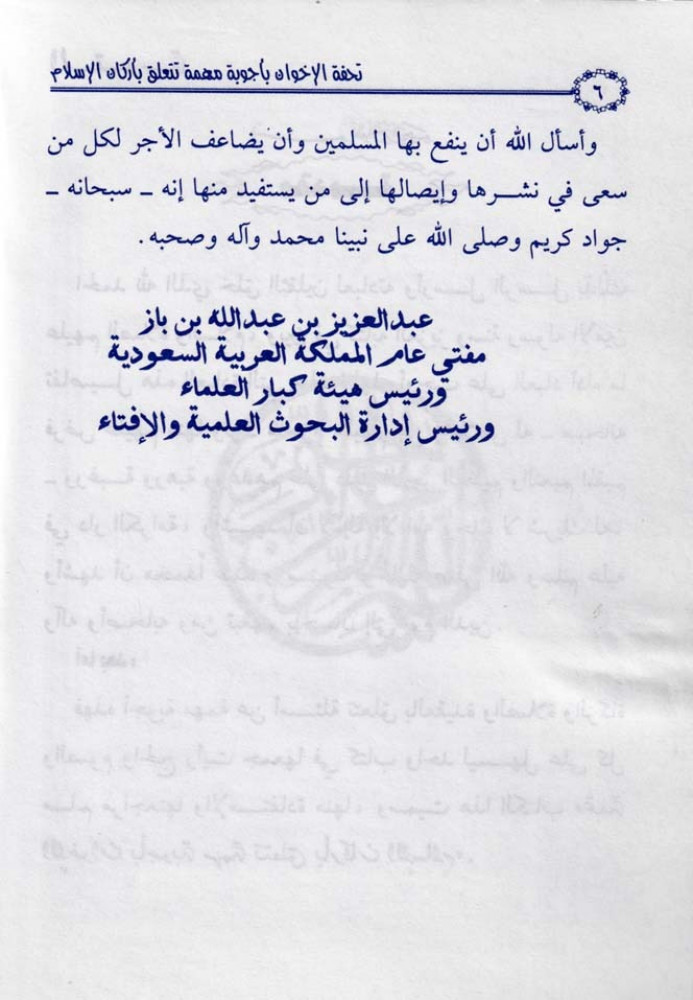 تحفة الإخوان بأجوبة مهمة تتعلق بأركان الإسلام
٦
وأسأل الله أن ينفع بها المسلمين وأن يضاعف الأجر لكل من
سعى في نشـــرها وإيصالها إلى من يستفيد منها إنه ـ سبحانه ـ
جواد كريم وصلى الله على نبينا محمد وآله وصحبه .
عبدالعزيز بن عبدالله بن باز
مفتي عام المملكة العربية السعودية
ورئيس هيئة كبار العلماء
ورئيس إدارة البحوث العلمية والإفتاء